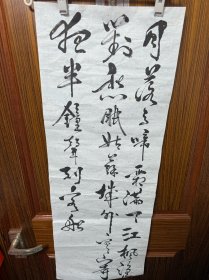 月落烏啼霜滿天江楓漁火
對愁眠姑蘇城外寒山寺
夜半鐘聲到客船